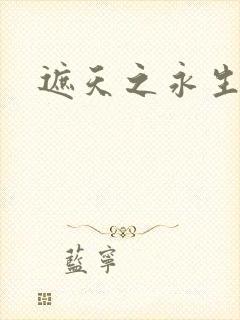 遮天之永生
藍寧